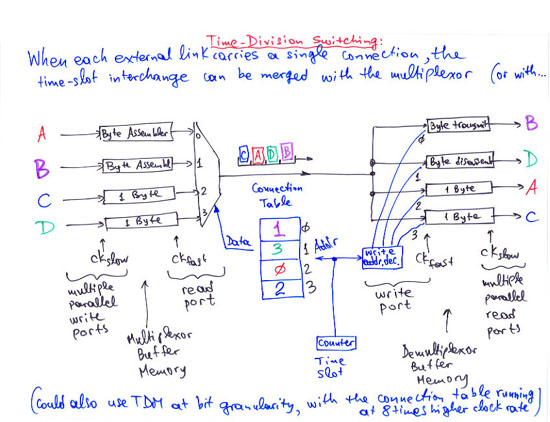 Time-Division Switching:
When each external link carries a single connection, the
time-slot interchange can be merged with the multiplexor (or with...
A Byte Assembler 0
B Byte Assembl 1
C 1 Byte 2
D 1 Byte 3
C A D B
Connection
Table
Data
1 0
3 1
0 2
2 3
Addr
write
addr.dec.
counter
Time
slot
Byte transmit B
0
Byte disassemb D
1
1 Byte A
2
1 Byte C
3
ckslow
multiple
parallel
write
ports
ckfast
read
port
Multiplexor
Buffer
Memory
write
port
ckfast
ckslow
multiple
parallel
read
ports
Demultiplexor
Buffer
Memory
(Could also use TDM at bit granularity, with the connection table running
at 8 times higher clock rate)